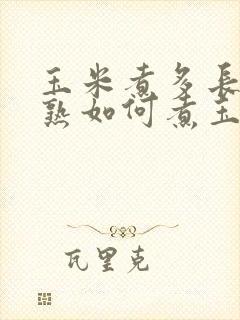 玉米煮多長
熟如何煮玉
瓦里克